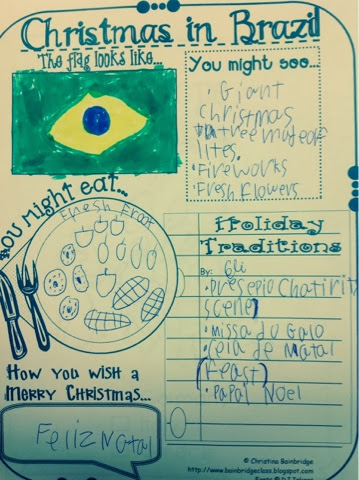 Christmas in Brazil
The flag looks like...
You might see...
· Giant
christmas
tree made of
lites.
· Fireworks
· Fresh Flowers
You might eat...
Fresh Froot
Holiday
Traditions
By: Eli
· Presepio (hatirity
scene)
· Missa do Galo
· Ceia de Natal
(Feast)
· Papai Noel
How you wish a
Merry Christmas...
Feliz Natal
© Christina Bainbridge
http://www.bainbridgeclass.blogspot.com